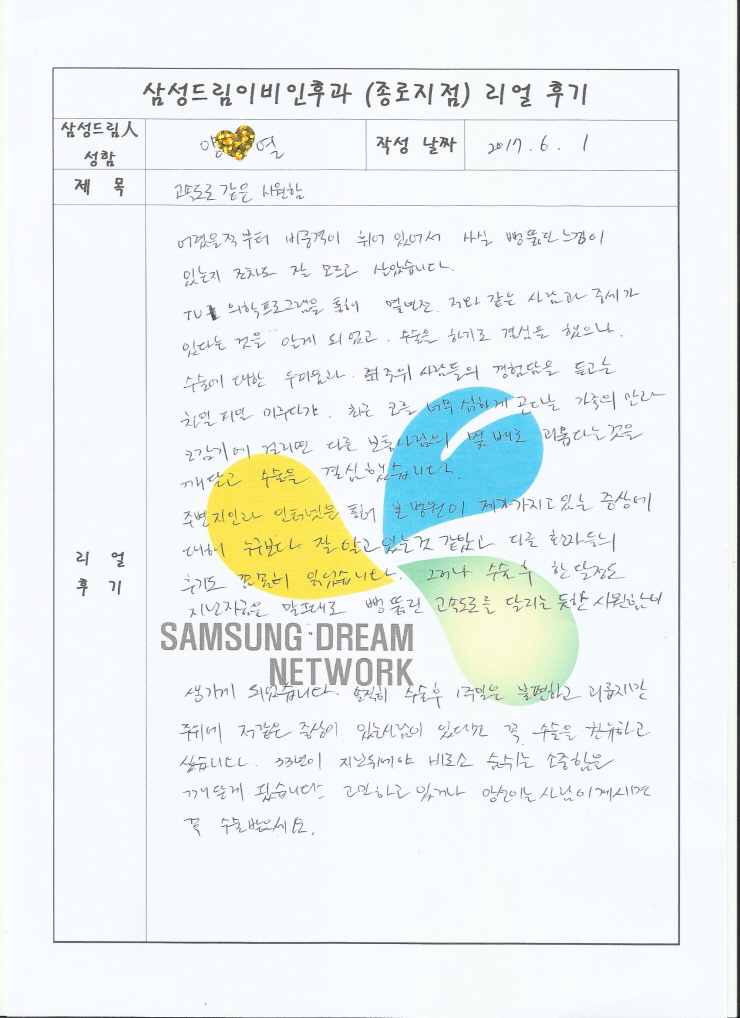 삼성드림이비인후과 (종로지점) 리얼 후기
삼성드림人 성함
양 열
작성 날짜
2017. 6. 1
제 목
고속도로 같은 시원함
리 얼 후 기
어렸을적부터 비중격이 휘어 있어서 사실 뻥뚫린느낌이
있는지 조차도 잘 모르고 살았습니다.
TV 의학프로그램을 통해 몇년전, 저와 같은 사람과 증세가
있다는 것을 알게 되었고, 수술을 하기로 결심을 했으나,
수술에 대한 두려움과, 주위 사람들의 경험담을 듣고는
차일 피일 미루다가, 최근 코를 너무 심하게 곤다는 가족의 말과
코감기에 걸리면 다른 보통사람의 몇 배로 괴롭다는것을
깨닫고 수술을 결심했습니다.
주변지인과 인터넷을 통해 본병원이 제가가지고있는 증상에
대해 누구보다 잘 알고있는것 같았고 다른 환자들의
후기도 꼼꼼히 읽었습니다. 그러나 수술 후 한 달정도
지난지금은 말그대로 뻥 뚫린 고속도로를 달리는 듯한 시원함이
SAMSUNG DREAM
NETWORK
생기게 되었습니다. 솔직히 수술후 1주일은 불편하고 괴롭지만
주위에 저같은 증상이 있는사람이 있다면 꼭 수술을 권유하고
싶습니다. 33년이 지난뒤에야 비로소 숨쉬는 소중함을
깨닫게 됐습니다. 고민하고 있거나 망설이는 사람이계시면
꼭 수술받으세요.